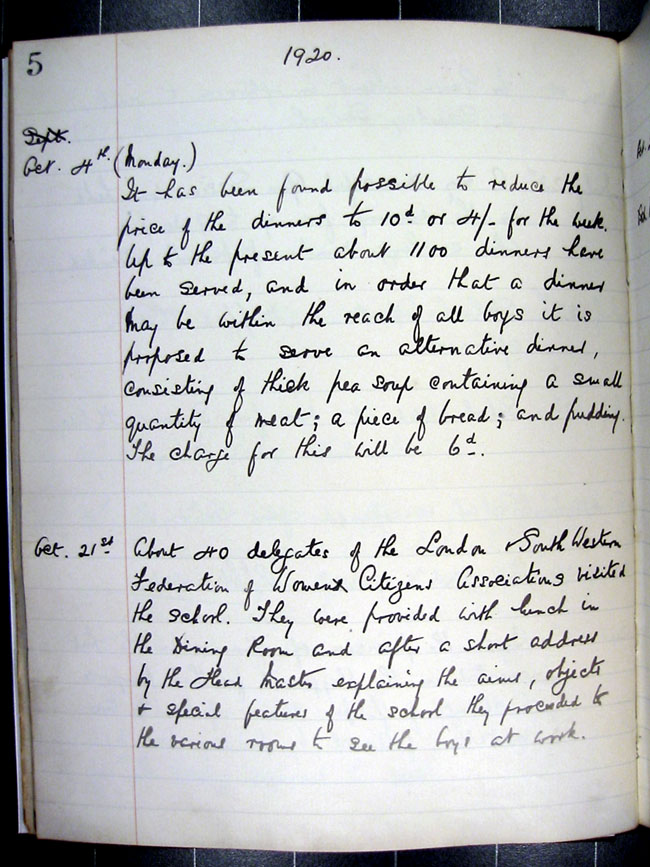 5
1920.
Sept.
Oct. 4th. (Monday.)
It has been found possible to reduce the
price of the dinners to 10d or 4/- for the week.
Up to the present about 1100 dinners have
been served, and in order that a dinner
may be within the reach of all boys it is
proposed to serve an alternative dinner,
consisting of thick pea soup containing a small
quantity of meat; a piece of bread; and pudding.
The charge for this will be 6d.
Oct. 21st About 40 delegates of the London & South Western
Federation of Women Citizens Associations visited
the school. They were provided with lunch in
the Dining Room and after a short address
by the Head Master explaining the aims, objects
& special features of the school they proceeded to
the various rooms to see the boys at work.